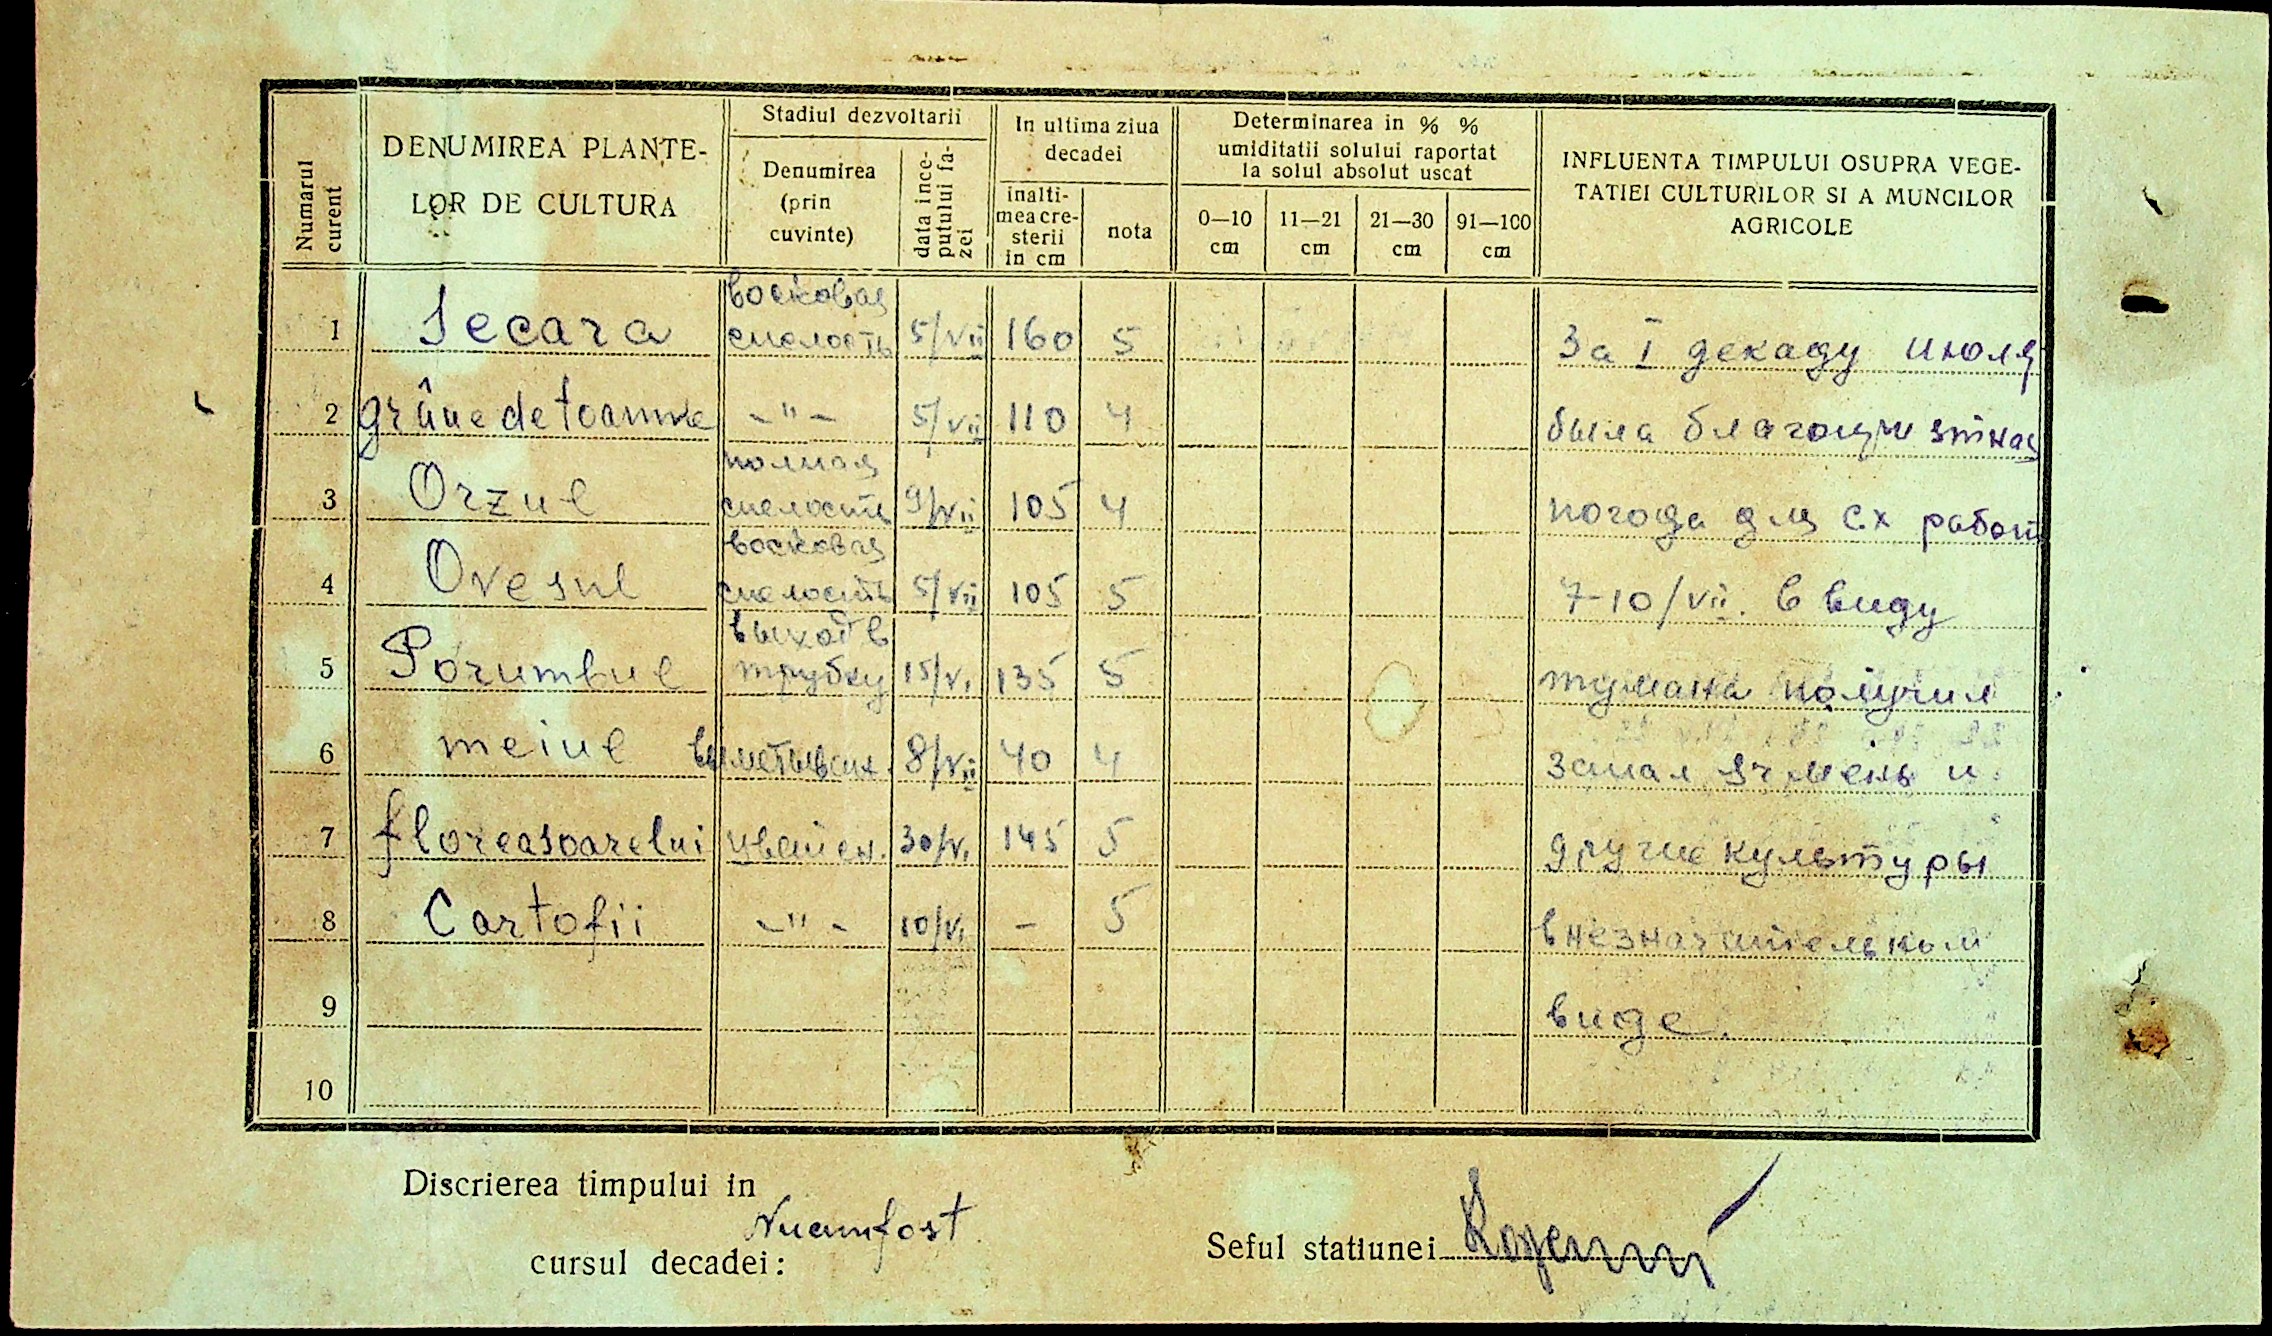 Numarul curent
DENUMIREA PLANTE-
LOR DE CULTURA
Stadiul dezvoltarii
Denumirea
(prin
cuvinte)
data ince-
putului fa-
zei
In ultima ziua
decadei
inalti-
mea cre-
sterii
in cm
nota
Determinarea in % %
umiditatii solului raportat
la solul absolut uscat
0—10 cm
11—21 cm
21—30 cm
91—100 cm
INFLUENTA TIMPULUI OSUPRA VEGE-
TATIEI CULTURILOR SI A MUNCILOR
AGRICOLE
восковая
1 Secara спелость 5/VII 160 5 За I декаду июля
2 grâne de toamna –"– 5/VII 110 4 была благоприятная
полная
3 Orzul спелость 9/VII 105 4 погода для сх работ
восковая
4 Ovesul спелость 5/VII 105 5 7-10/VII. в виду
выход в
5 Porumbul трубку 15/VI 135 5 тумана получил
6 meiul выметыван. 8/VII 40 4 запал ячмень и
7 floreasoarelui цветен. 30/VI 145 5 другие культуры
8 Cartofii –"– 10/VI – 5 в незначительном
9 виде.
10
Discrierea timpului in
cursul decadei: Nu am fost
Seful statiunei